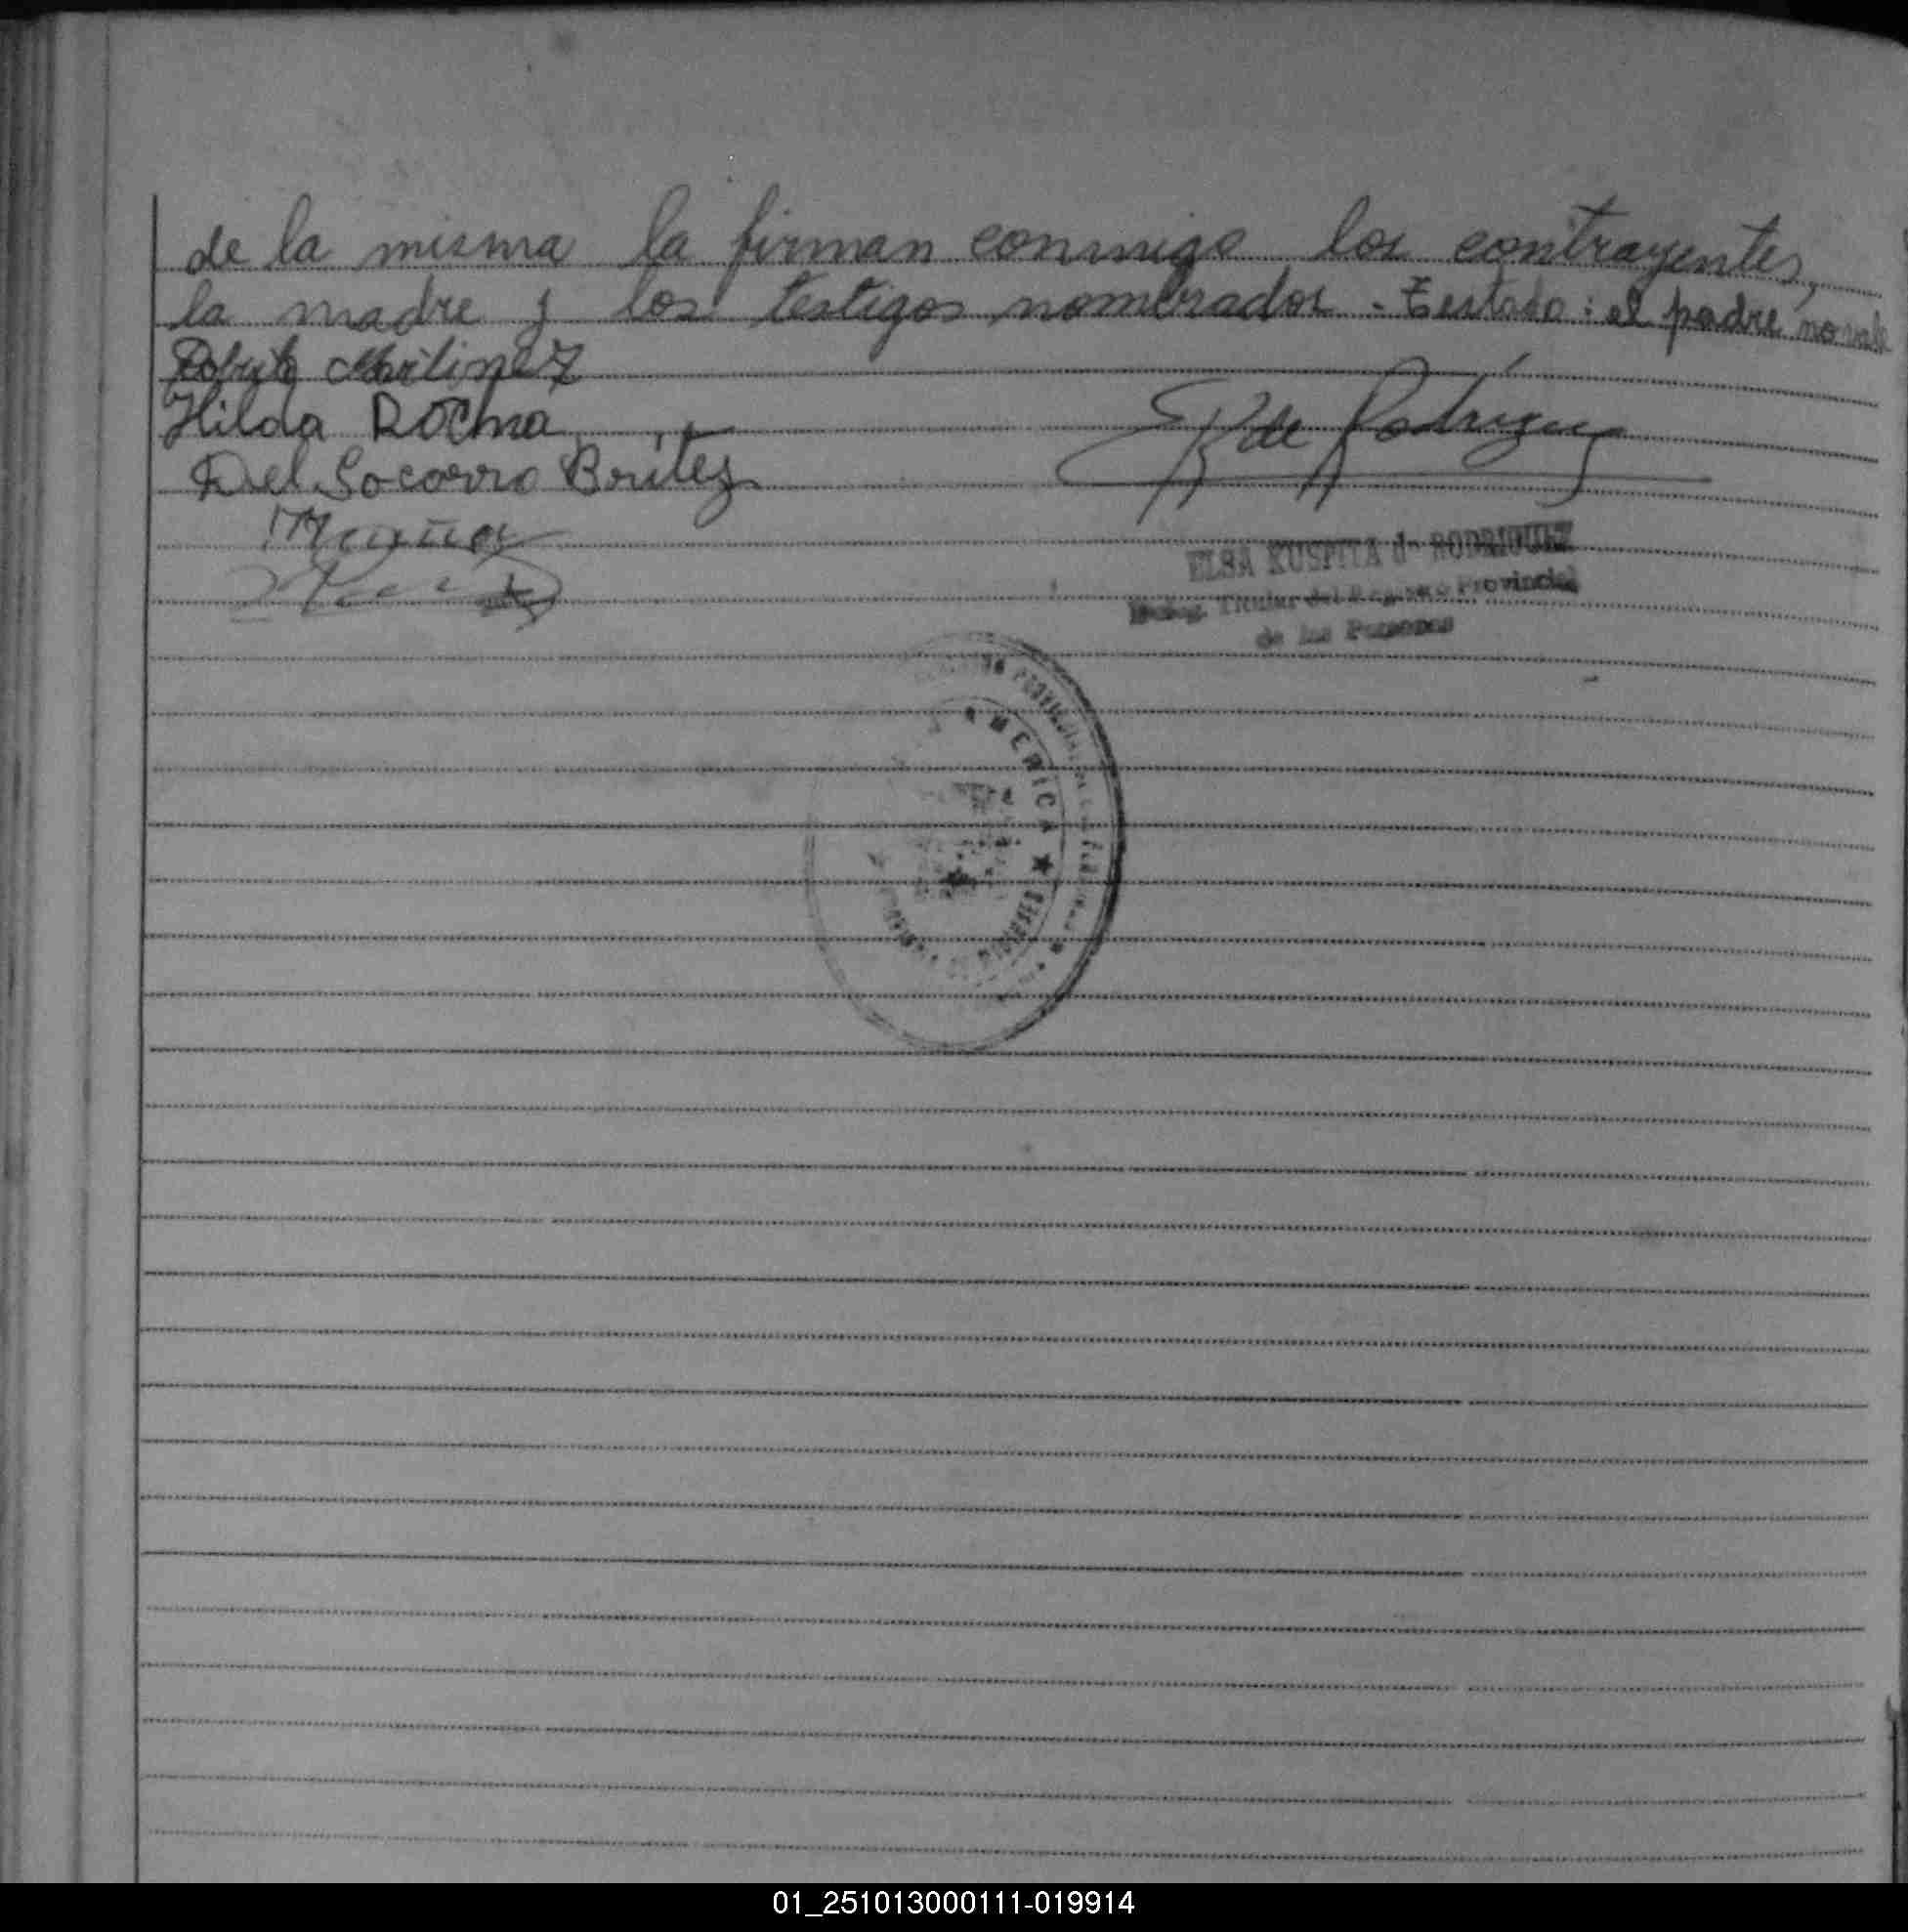 de la misma la firman conmigo los contrayentes,
la madre y los testigos nombrados - Testado: el padre, no vale
Roberto Martinez
Hilda Rocha
Del Socorro Brítez
K de Rodríguez
ELSA KUSPITA de RODRIGUEZ
Titular del Registro Provincial
de las Personas
PROVINCIAL
AMERICA
01_251013000111-019914